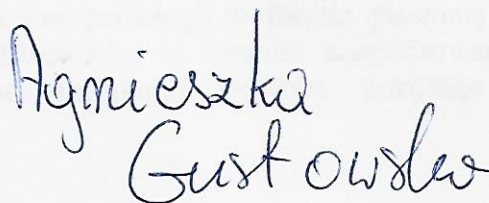 Agnieszka
Gustowska